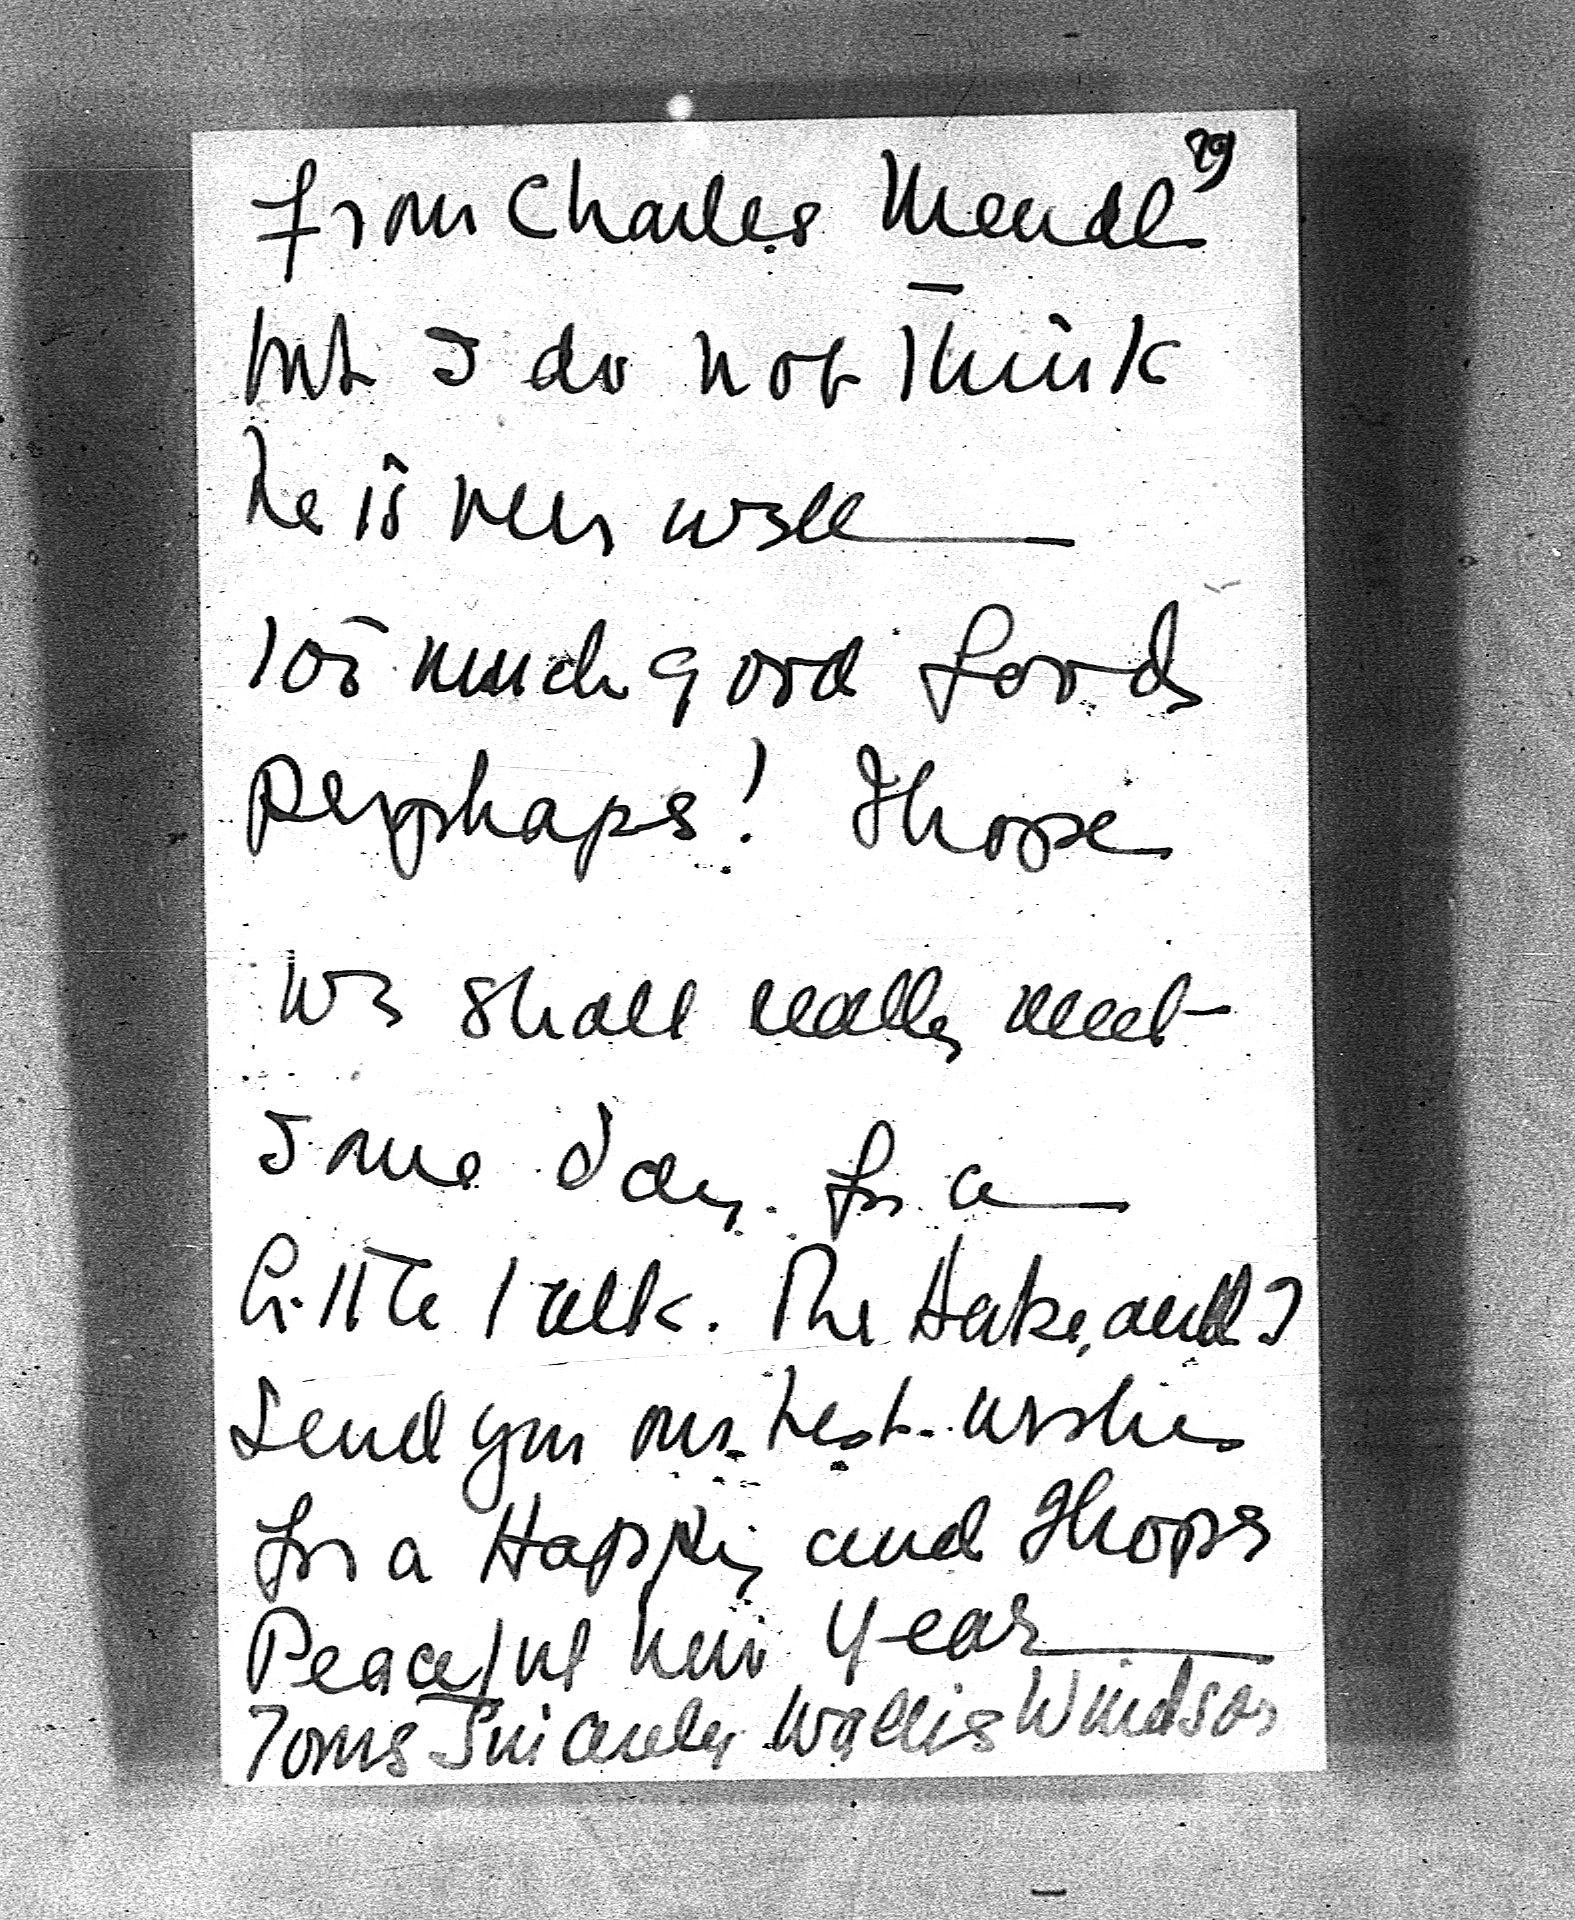 29
from Charles Mendl
but I do not think
he is very well
too much good food
perhaps! I hope
we shall really meet
some day for a
little talk. The Duke, and I
send you our best wishes
for a Happy and I hope
Peaceful new year
Yours Sincerely Wallis Windsor